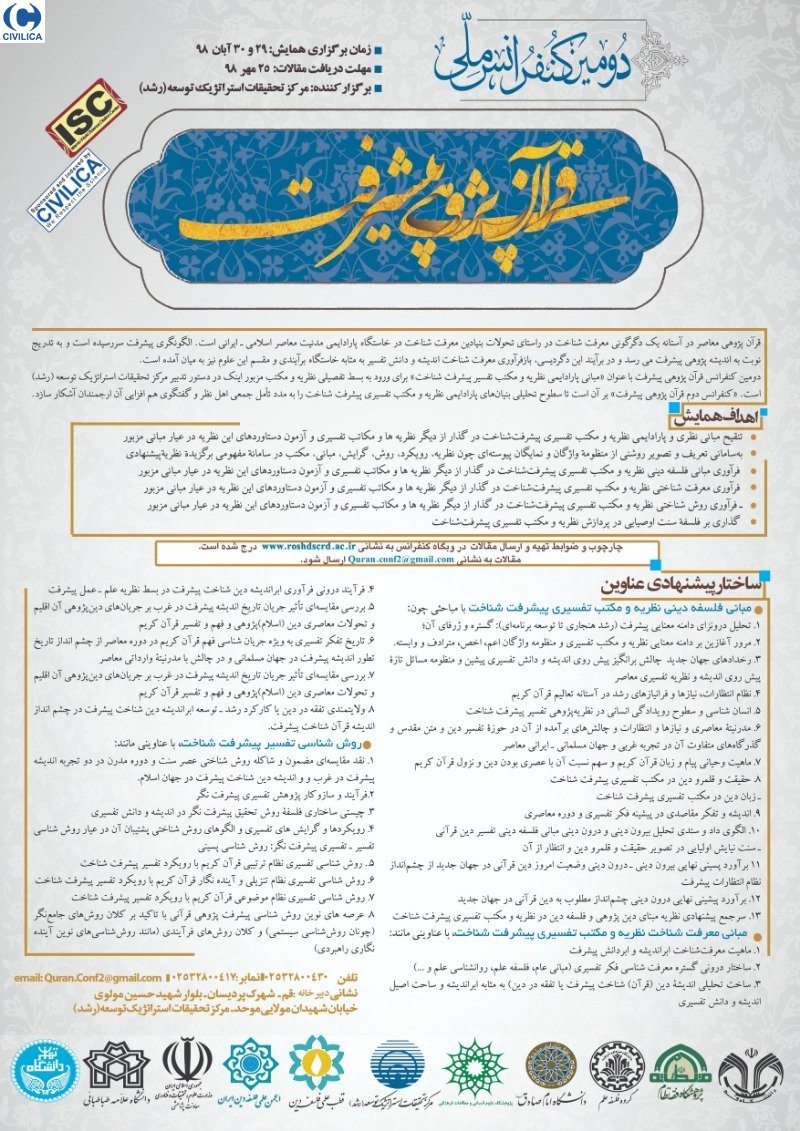 CIVILICA
دومین کنفرانس ملّی
زمان برگزاری همایش: ۲۹ و ۳۰ آبان ۹۸
مهلت دریافت مقالات: ۲۵ مهر ۹۸
برگزار کننده: مرکز تحقیقات استراتژیک توسعه (رشد)
ISC
Sponsored and Indexed by
CIVILICA
We Respect the Science
قرآن پژوهی پیشرفت
قرآن پژوهی معاصر در آستانه یک دگرگونی معرفت شناخت در راستای تحولات بنیادین معرفت شناخت در خاستگاه پارادایمی مدنیت معاصر اسلامی ـ ایرانی است. الگونگری پیشرفت سررسیده است و به تدریج
نوبت به اندیشه پژوهی پیشرفت می رسد و در برآیند این دگردیسی، بازفرآوری معرفت شناخت اندیشه و دانش تفسیر به مثابه خاستگاه برآیندی و مقسم این علوم نیز به میان آمده است.
دومین کنفرانس قرآن پژوهی پیشرفت با عنوان «مبانی پارادایمی نظریه و مکتب تفسیر پیشرفت شناخت» برای ورود به بسط تفصیلی نظریه و مکتب مزبور اینک در دستور تدبیر مرکز تحقیقات استراتژیک توسعه (رشد)
است. «کنفرانس دوم قرآن پژوهی پیشرفت» بر آن است تا سطوح تحلیلی بنیان‌های پارادایمی نظریه و مکتب تفسیری پیشرفت شناخت را به مدد تأمل جمعی اهل نظر و گفتگوی هم افزایی آن ارجمندان آشکار سازد.
اهداف همایش
تنقیح مبانی نظری و پارادایمی نظریه و مکتب تفسیری پیشرفت‌شناخت در گذار از دیگر نظریه ها و مکاتب تفسیری و آزمون دستاوردهای این نظریه در عیار مبانی مزبور
به‌سامانی تعریف و تصویر روشنی از منظومهٔ واژگان و نمایگان پیوسته‌ای چون نظریه، رویکرد، روش، گرایش، مبانی، مکتب در سامانهٔ مفهومی برگزیدهٔ نظریهٔ پیشنهادی
فرآوری مبانی فلسفه دینی نظریه و مکتب تفسیری پیشرفت‌شناخت در گذار از دیگر نظریه ها و مکاتب تفسیری و آزمون دستاوردهای این نظریه در عیار مبانی مزبور
فرآوری معرفت شناختی نظریه و مکتب تفسیری پیشرفت‌شناخت در گذار از دیگر نظریه ها و مکاتب تفسیری و آزمون دستاوردهای این نظریه در عیار مبانی مزبور
ـ فرآوری روش شناختی نظریه و مکتب تفسیری پیشرفت‌شناخت در گذار از دیگر نظریه ها و مکاتب تفسیری و آزمون دستاوردهای این نظریه در عیار مبانی مزبور
گذاری بر فلسفهٔ سنت اوصیایی در پردازش نظریه و مکتب تفسیری پیشرفت‌شناخت
چارچوب و ضوابط تهیه و ارسال مقالات در وبگاه کنفرانس به نشانی www.roshdscrd.ac.ir درج شده است.
مقالات به نشانی Quran.conf2@gmail.com ارسال شود.
ساختار پیشنهادی عناوین
مبانی فلسفه دینی نظریه و مکتب تفسیری پیشرفت شناخت با مباحثی چون:
۱. تحلیل درونزای دامنه معنایی پیشرفت (رشد هنجاری تا توسعه برنامه‌ای): گستره و ژرفای آن؛
۲. مرور آغازین بر دامنه معنایی نظریه و مکتب تفسیری و منظومه واژگان اعم، اخص، مترادف و وابسته.
۳. رخدادهای جهان جدید چالش برانگیز پیش روی اندیشه و دانش تفسیری پیشین و منظومه مسائل تازهٔ
پیش روی اندیشه و نظریه تفسیری معاصر
۴. نظام انتظارات، نیازها و فرانیازهای رشد در آستانه تعالیم قرآن کریم
۵. انسان شناسی و سطوح رویدادگی انسانی در نظریه‌پژوهی تفسیر پیشرفت شناخت
۶. مدرنیتهٔ معاصری و نیازها و انتظارات و چالش‌های برآمده از آن در حوزهٔ تفسیر دین و متن مقدس و
گذرگاه‌های متفاوت آن در تجربه غربی و جهان مسلمانی ـ ایرانی معاصر
۷. ماهیت وحیانی پیام و زبان قرآن کریم و سهم نسبت آن با عصری بودن دین و نزول قرآن کریم
۸. حقیقت و قلمرو دین در مکتب تفسیری پیشرفت شناخت
ـ زبان دین در مکتب تفسیری پیشرفت شناخت
۹. اندیشه و تفکر مقاصدی در پیشینه فکر تفسیری و دوره معاصری
۱۰. الگوی داد و ستدی تحلیل بیرون دینی و درون دینی مبانی فلسفه دینی تفسیر دین قرآنی
ـ سنت نیایش اولیایی در تصویر حقیقت و قلمرو دین و انتظار از آن
۱۱. برآورد پسینی نهایی بیرون دینی ـ درون دینی وضعیت امروز دین قرآنی در جهان جدید از چشم‌انداز
نظام انتظارات پیشرفت
۱۲. برآورد پیشینی نهایی درون دینی چشم‌انداز مطلوب به دین قرآنی در جهان جدید
۱۳. سرجمع پیشنهادی نظریه مبنای دین پژوهی و فلسفه دین در نظریه و مکتب تفسیری پیشرفت شناخت
مبانی معرفت شناخت نظریه و مکتب تفسیری پیشرفت شناخت، با عناوینی مانند:
۱. ماهیت معرفت‌شناخت ابراندیشه و ابردانش پیشرفت
۲. ساختار درونی گستره معرفت شناسی فکر تفسیری (مبانی عام، فلسفه علم، روانشناسی علم و ...)
۳. ساخت تحلیلی اندیشهٔ دین (قرآن) شناخت پیشرفت یا تفقه در دین) به مثابه ابراندیشه و ساحت اصیل
اندیشه و دانش تفسیری
۴. فرآیند درونی فرآوری ابراندیشه دین شناخت پیشرفت در بسط نظریه علم ـ عمل پیشرفت
۵. بررسی مقایسه‌ای تأثیر جریان تاریخ اندیشه پیشرفت در غرب بر جریان‌های دین‌پژوهی آن اقلیم
و تحولات معاصری دین (اسلام)پژوهی و فهم و تفسیر قرآن کریم
۶. تاریخ تفکر تفسیری به ویژه جریان شناسی فهم قرآن کریم در دوره معاصر از چشم انداز تاریخ
تطور اندیشه پیشرفت در جهان مسلمانی و در چالش با مدرنیتهٔ وارداتی معاصر
۷. بررسی مقایسه‌ای تأثیر جریان تاریخ اندیشه پیشرفت در غرب بر جریان‌های دین‌پژوهی آن اقلیم
و تحولات معاصری دین (اسلام)پژوهی و فهم و تفسیر قرآن کریم
۸. ولایتمندی تفقه در دین یا کارکرد رشد ـ توسعه ابراندیشه دین شناخت پیشرفت در چشم انداز
اندیشه قرآن شناخت پیشرفت.
روش شناسی تفسیر پیشرفت شناخت، با عناوینی مانند:
۱. نقد مقایسه‌ای مضمون و شاکله روش شناختی عصر سنت و دوره مدرن در دو تجربه اندیشه
پیشرفت در غرب و و اندیشه دین شناخت پیشرفت در جهان اسلام.
۲. فرآیند و سازوکار پژوهش تفسیری پیشرفت نگر
۳. چیستی ساختاری فلسفهٔ روش تحقیق پیشرفت نگر در اندیشه و دانش تفسیری
۴. رویکردها و گرایش های تفسیری و الگوهای روش شناختی پشتیبان آن در عیار روش شناسی
تفسیر ـ تفسیری پیشرفت نگر: روش شناسی پسینی
۵. روش شناسی تفسیری نظام ترتیبی قرآن کریم با رویکرد تفسیر پیشرفت شناخت
۶. روش شناسی تفسیری نظام تنزیلی و آینده نگار قرآن کریم با رویکرد تفسیر پیشرفت شناخت
۷. روش شناسی تفسیری نظام موضوعی قرآن کریم با رویکرد تفسیر پیشرفت شناخت
۸. عرصه های نوین روش شناسی پیشرفت پژوهی قرآنی با تاکید بر کلان روش‌های جامع‌نگر
(چونان روش‌شناسی سیستمی) و کلان روش‌های فرآیندی (مانند روش‌شناسی‌های نوین آینده
نگاری راهبردی)
تلفن ۰۲۵۳۲۸۰۰۴۳۰ نمابر: ۰۲۵۳۲۸۰۰۴۱۷ email: Quran.Conf2@gmail.com
نشانی دبیر خانه: قم ـ شهرک پردیسان ـ بلوار شهید حسین مولوی
خیابان شهیدان مولایی موحد ـ مرکز تحقیقات استراتژیک توسعه (رشد)
پژوهشگاه فقه نظام
گروه فلسفه علم
دانشگاه امام صادق
پژوهشگاه علوم انسانی و مطالعات فرهنگی
مرکز تحقیقات استراتژیک توسعه (رشد)
قطب علمی فلسفه دین
انجمن علمی فلسفه دین ایران
جمهوری اسلامی ایران
وزارت علوم، تحقیقات و فناوری
معاونت پژوهش
دانشگاه علامه طباطبائی
دانشگاه تهران